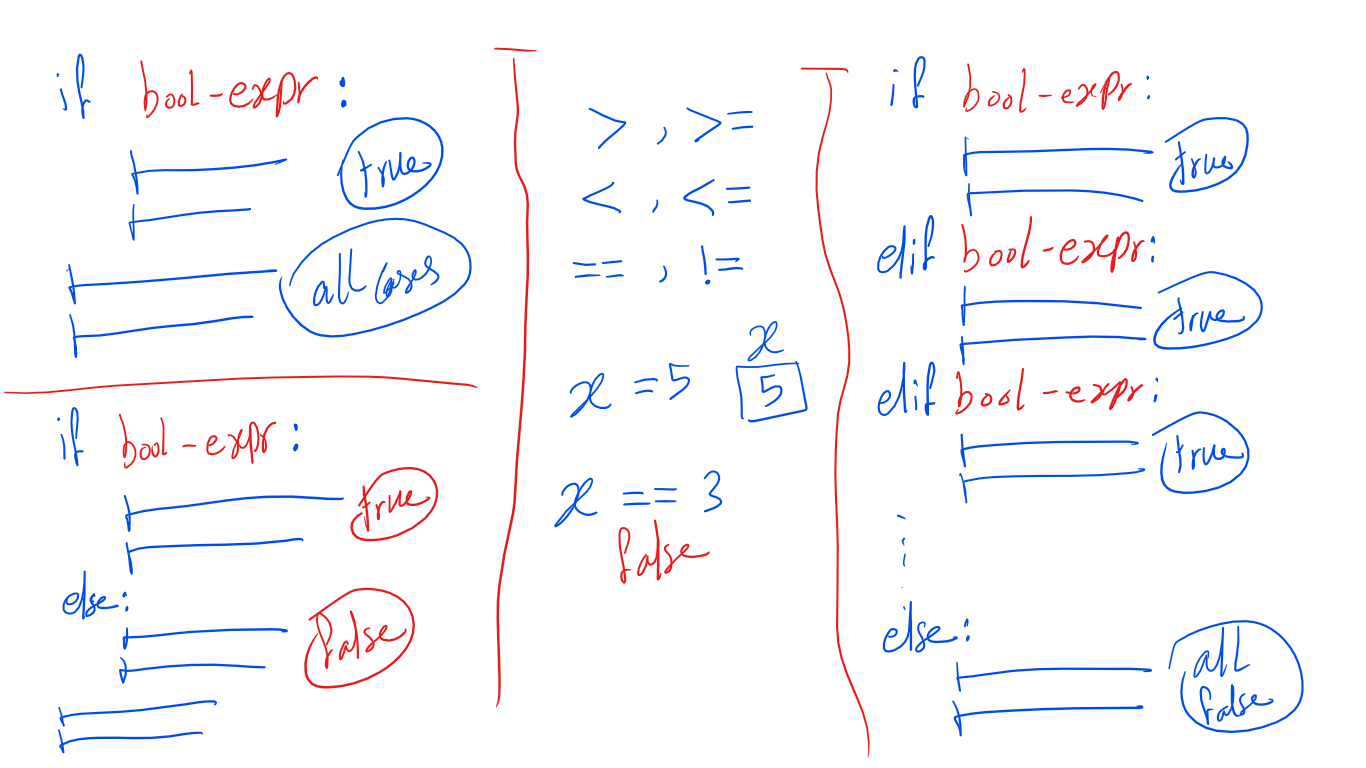 if bool-expr:
true
all cases
if bool-expr:
true
else:
false
> , >=
< , <=
== , !=
x
x = 5 5
x == 3
false
if bool-expr:
true
elif bool-expr:
true
elif bool-expr:
true
else:
all
false